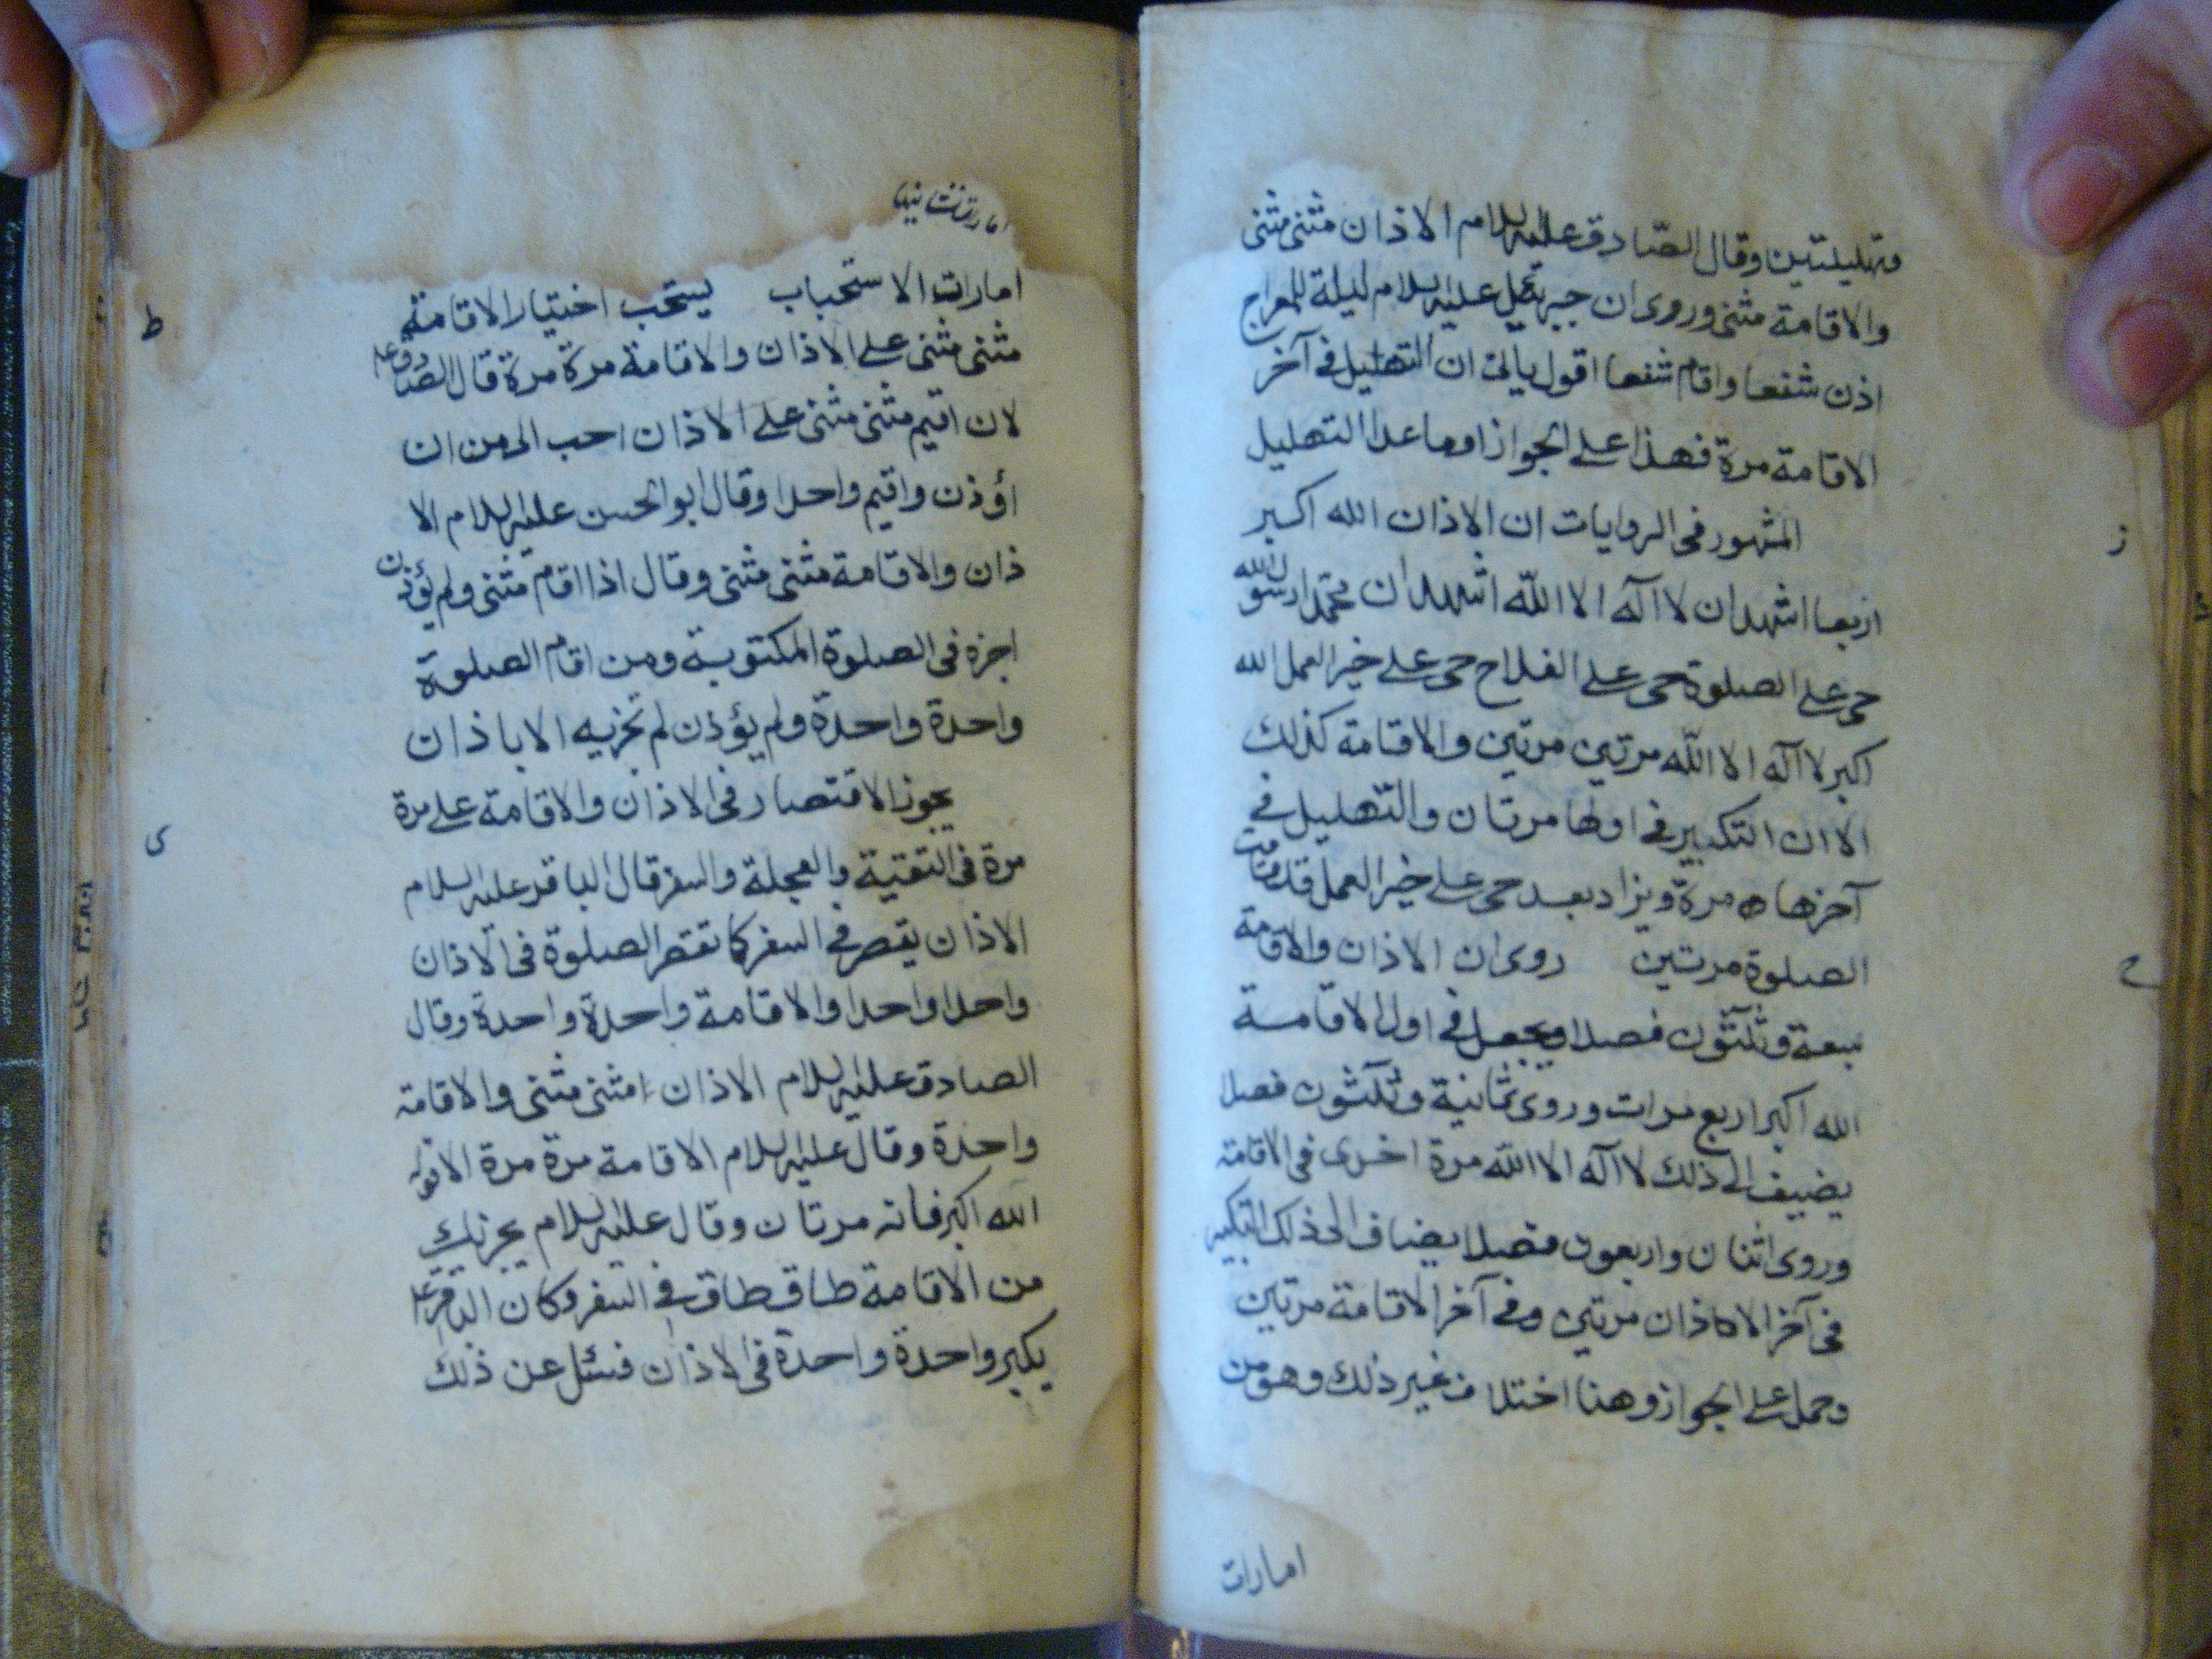 وتهليلتين وقال الصّادق عليه السلام الاذان مثنى مثنى
والاقامة مثنى وروى ان جبرئيل عليه السلام ليلة المعراج
اذن شفعا واقام شفعا اقول ياتى ان التهليل فى آخر
الاقامة مرة فهذا على الجواز او ما عدا التهليل
ز
المشهور فى الروايات ان الاذان الله اكبر
اربعا اشهد ان لا آله الا الله اشهد ان محمدا رسول الله
حى على الصلوة حى على الفلاح حى على خير العمل الله
اكبر لا آله الا الله مرتين مرتين والاقامة كذلك
الا ان التكبير فى اولها مرتان والتهليل فى
آخرها مرة ويزاد بعد حى على خير العمل قد قامت
الصلوة مرتين روى ان الاذان والاقامة
ح
سبعة وثلثون فصلا ويجعل فى اول الاقامة
الله اكبر اربع مرات وروى ثمانية وثلثون فصلا
يضيف الى ذلك لا آله الا الله مرة اخرى فى الاقامة
وروى اثنان واربعون فصلا يضاف الى ذلك التكبير
فى آخر الاذان مرتين وفى آخر الاقامة مرتين
وحمل على الجواز وهنا اختلاف غير ذلك وهو من
امارات
امارات الاستحباب يستحب اختيار الاقامة
ط
مثنى مثنى على الاذان والاقامة مرة مرة قال الصادق ع
لان اقيم مثنى مثنى على الاذان احب الى من ان
اؤذن واقيم واحدا وقال ابو الحسن عليه السلام الا
ذان والاقامة مثنى مثنى وقال اذا اقام مثنى ولم يؤذن
اجزه فى الصلوة المكتوبة ومن اقام الصلوة
واحدة واحدة ولم يؤذن لم تجزيه الا باذان
يجوز الاقتصار فى الاذان والاقامة على مرة
ى
مرة فى التقية والعجلة والسفر قال الباقر عليه السلام
الاذان يقصر فى السفر كما تقصر الصلوة فى الاذان
واحدا واحدا والاقامة واحدة واحدة وقال
الصادق عليه السلام الاذان مثنى مثنى والاقامة
واحدة وقال عليه السلام الاقامة مرة مرة الا قوله
الله اكبر فانه مرتان وقال عليه السلام يجزيك
من الاقامة طاق طاق فى السفر وكان الباقر ع
يكبر واحدة واحدة فى الاذان فسئل عن ذلك